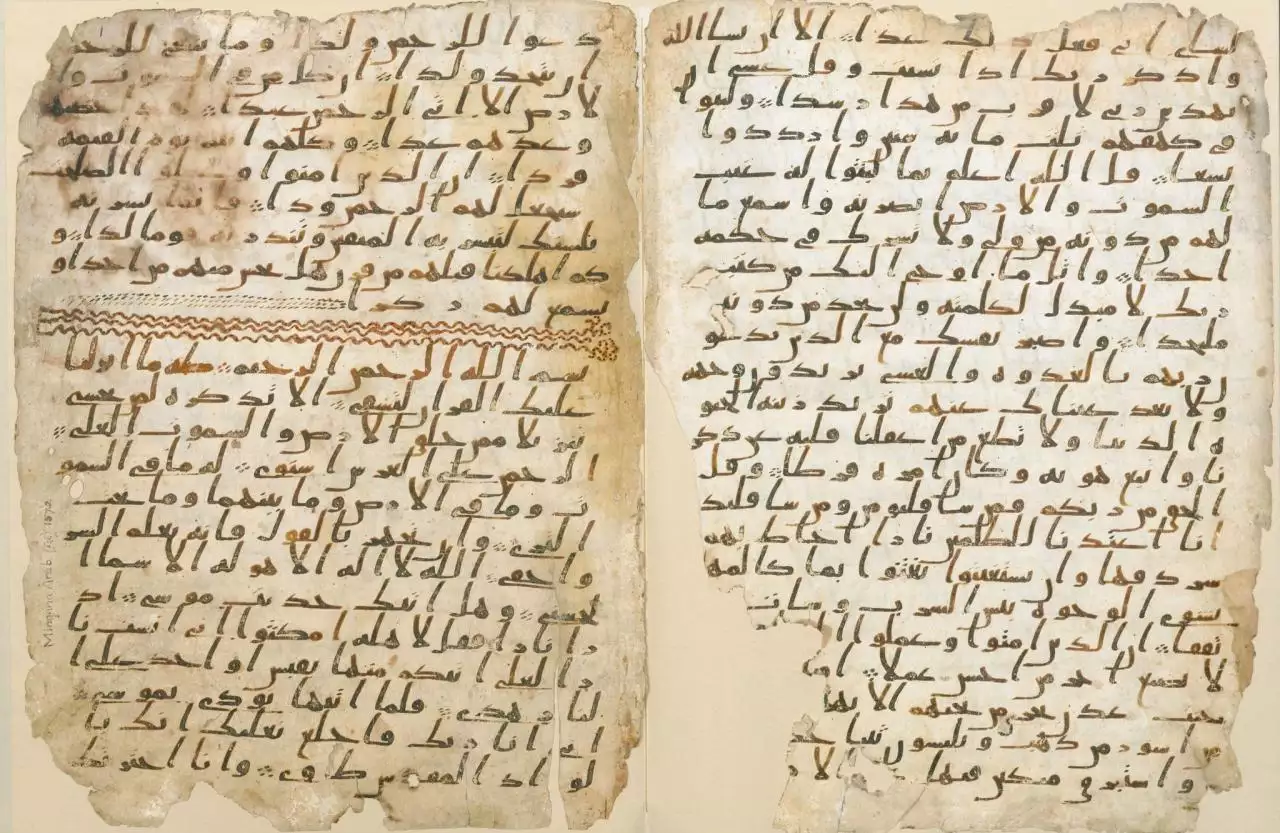 لشاي اني فعل ذلك غدا الا ان يشا الله
واذكر ربك اذا نسيت وقل عسى ان
يهدين ربي لاقرب من هذا رشدا ولبثوا
في كهفهم ثلث مايه سنين وازددوا
تسعا قل الله اعلم بما لبثوا له غيب
السموت والارض ابصر به واسمع ما
لهم من دونه من ولي ولا تشرك في حكمه
احدا واتل ما اوحي اليك من كتب
ربك لا مبدل لكلمته ولن تجد من دونه
ملتحدا واصبر نفسك مع الذين يدعون
ربهم بالغدوه والعشي يريدون وجهه
ولا تعد عيناك عنهم تريد زينه الحيو
ه الدنيا ولا تطع من اغفلنا قلبه عن ذكر
نا واتبع هويه وكان امره فرطا وقل
الحق من ربكم فمن شا فليومن ومن شا فليكفر
انا اعتدنا للظلمين نارا احاط بهم
سردقها وان يستغيثوا يغثوا بما كالمهل
يشوي الوجوه بئس الشرب وسات
تفقا ان الذين امنوا وعملوا ا
لا نضيع اجر من احسن عملا او
جنت عدن تجري من تحتهم الانها
من اسور من ذهب ويلبسون ثيابا خ
واستبرق متكين فيها الار
دعوا للرحمن ولدا وما ينبغي للرحمن
ان يتخذ ولدا ان كل من في السموت وا
لارض الا اتي الرحمن عبدا لقد احصيهم
وعدهم عدا وكلهم اتيه يوم القيمه
فردا ان الذين امنوا وعملوا الصلحت
سيجعل لهم الرحمن ودا فانما يسرنه
بلسنك لتبشر به المتقين وتنذر به قوما لدا و
كم اهلكنا قبلهم من قرن هل تحس منهم من احد او
تسمع لهم ركزا
بسم الله الرحمن الرحيم طه ما انزلنا
عليك القران لتشقى الا تذكره لمن يخشى
تنزيلا ممن خلق الارض والسموت العلى
الرحمن على العرش استوى له ما في السمو
ت وما في الارض وما بينهما وما تحت
الثرى وان تجهر بالقول فانه يعلم السر
واخفى الله لا اله الا هو له الاسما ا
لحسنى وهل اتيك حديث موسى اذ
را نارا فقل لاهله امكثوا اني انست نا
را لعلي اتيكم منها بقبس او اجد على ا
لنار هدى فلما اتيها نودي يموسى
اني انا ربك فاخلع نعليك انك با
لواد المقدس طوى وانا اخترتك
Mingana Arab (Isl) 1572